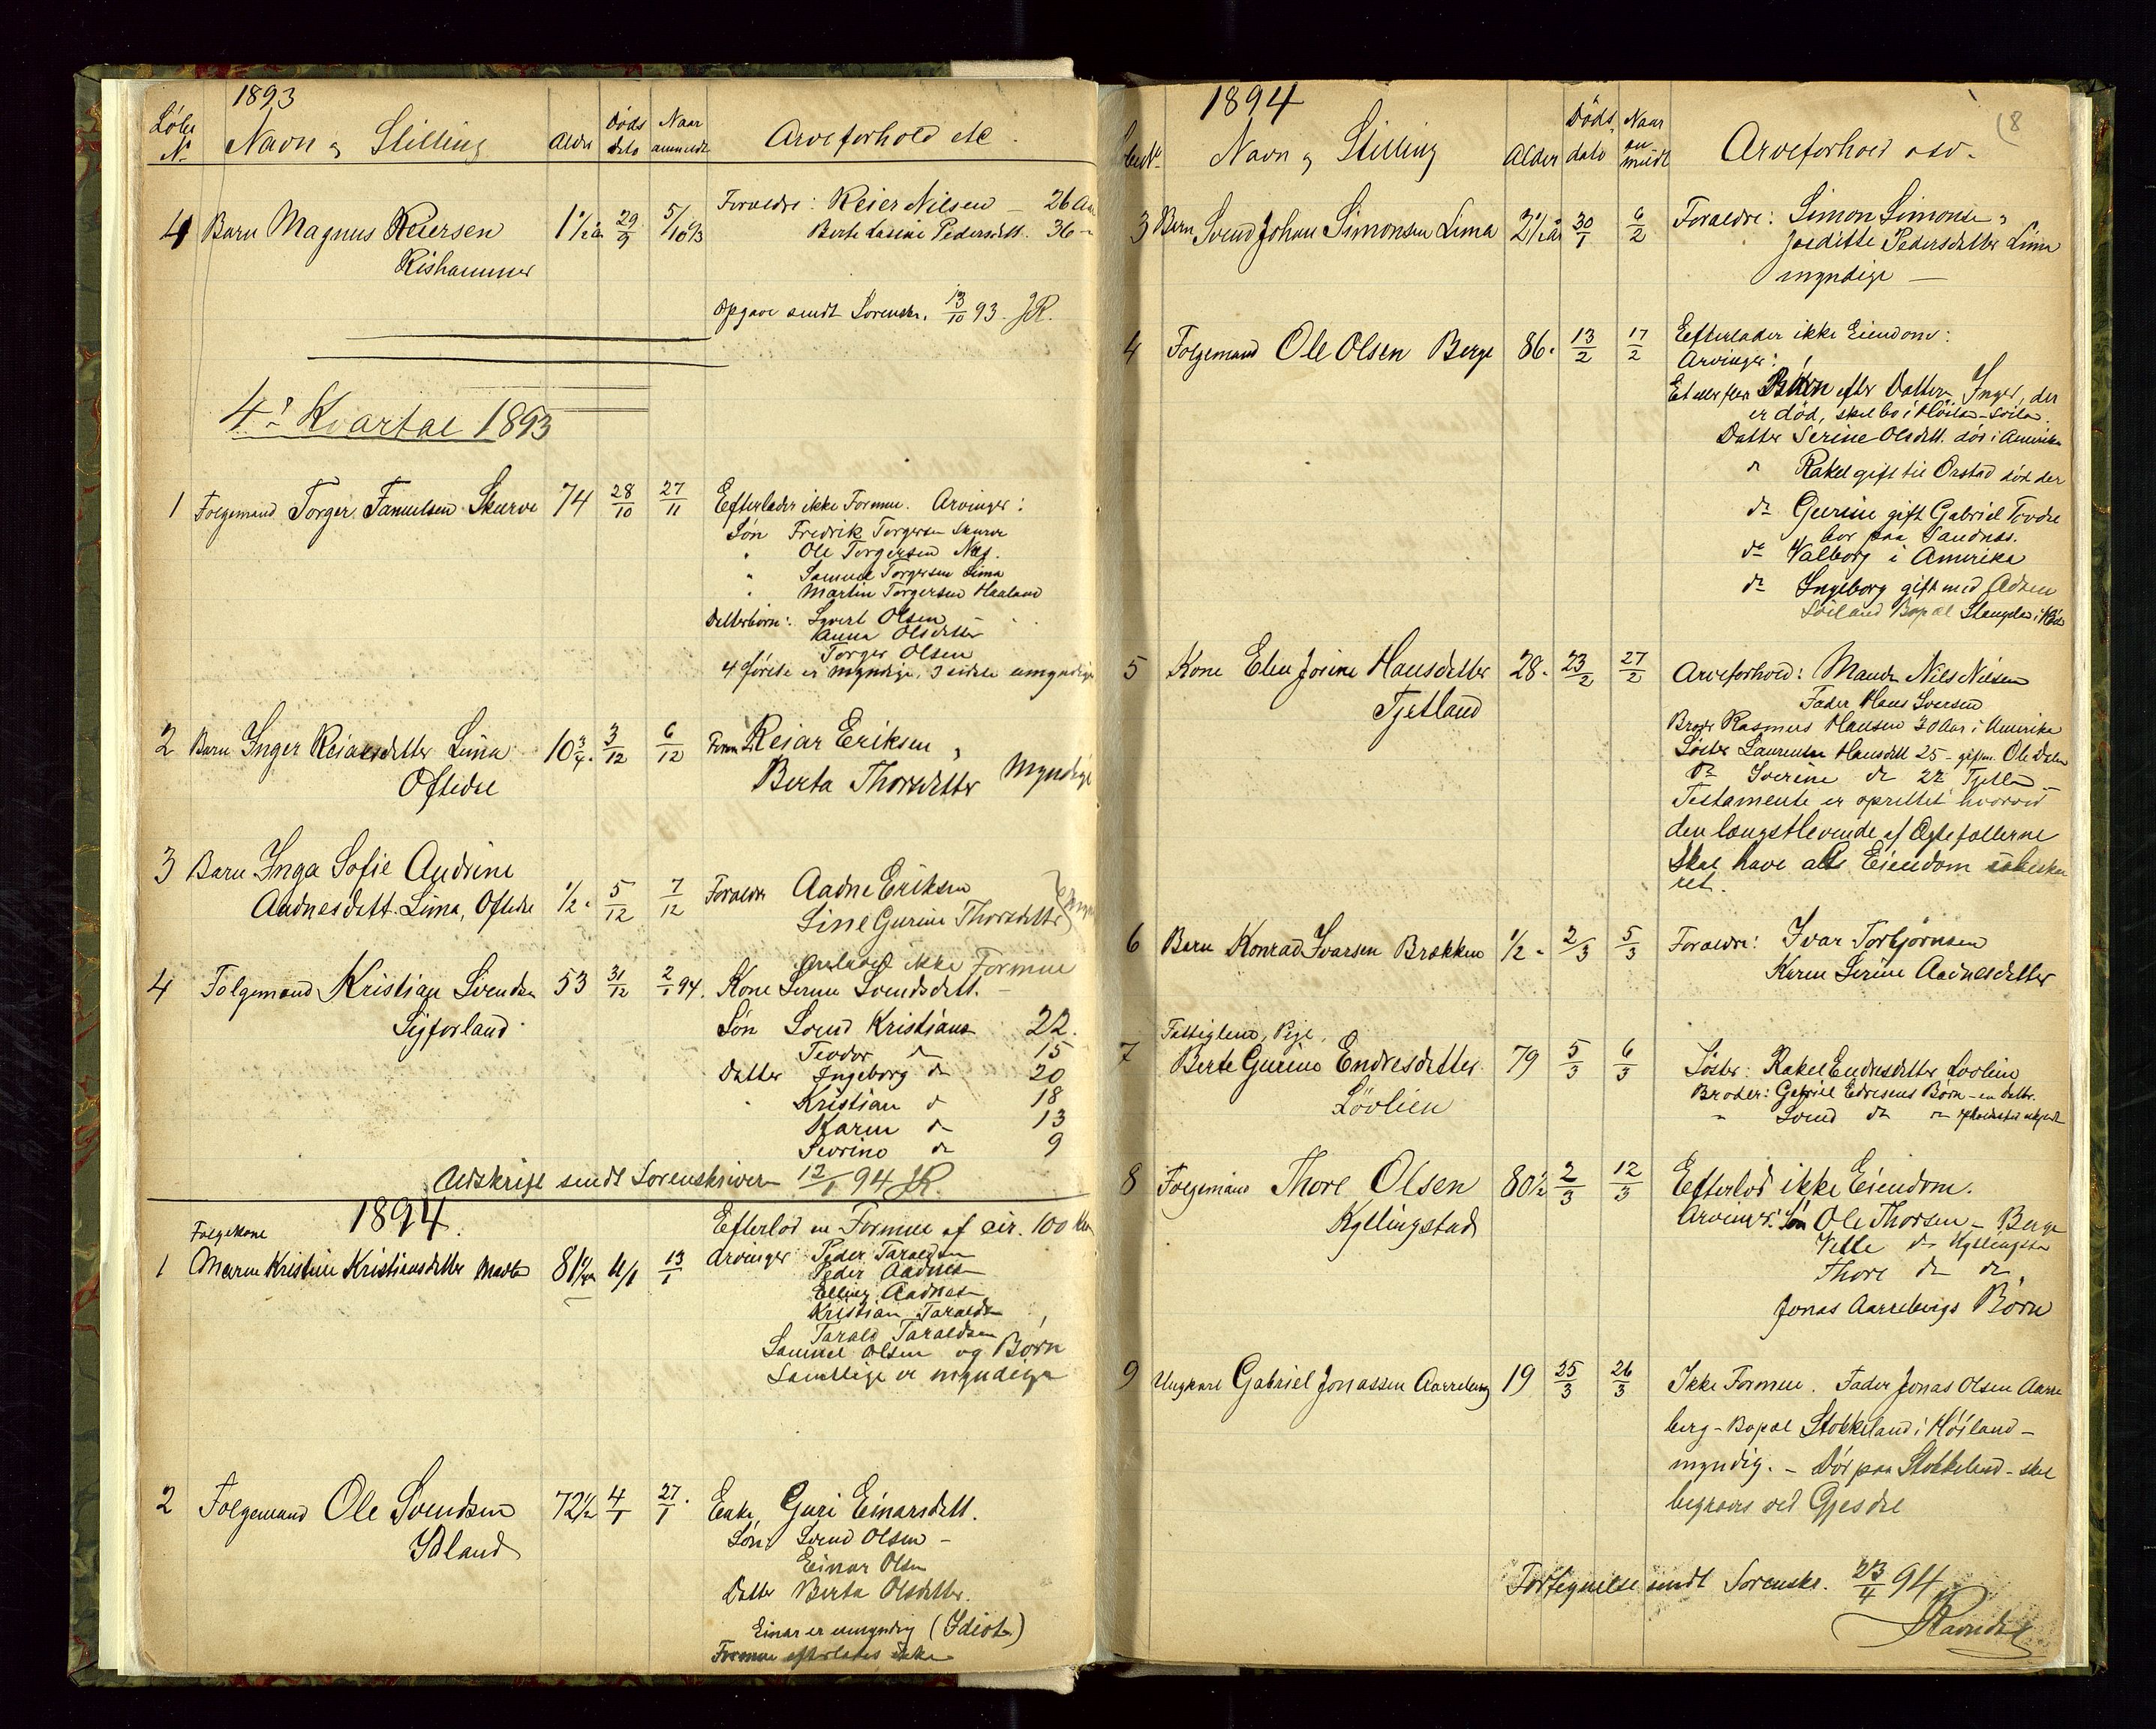 1893
Løbe N° Navn og Stilling Alder Døds dato Naar anmeldt Arveforhold etc.
4 Barn Magnus Reiersen 1 1/2 29/9 5/10 93 Forældre: Reier Nilsen — 26 Aar
Berte Pedersdtt. 36 "
Rishammer
Opgave sendt Sorenskr. 13/10 93. JR.
4de Kvartal 1893
1 Folgemand Torger Samuelsen Skurve 74 28/10 27/11 Efterlader ikke Formue. Arvinger:
Søn Fredrik Torgersen Skurve
" Ole Torgersen Næs.
" Samuel Torgersen Lima
" Martin Torgersen Haaland
Datterbørn: Sivert Olsen
Anna Olsdatter
Torger Olsen
4 første er myndige, 3 sidste umyndige
2 Barn Inger Reiarsdatter Lima 10 3/4 3/12 6/12 Reiar Eriksen
Oftedal
Berta Thorsdatter Myndige
3 Barn Inga Sofie Andrine
Aadnesdatt. Lima, Oftedal 1/2 " 5/12 7/12 Forældre Aadne Eriksen
Sine Gurine Thorsdatter
4 Folgemand Kristian Svendsen 53 31/12 2/1 94. ikke Formue
Kone Serine Svendsdatt. —
Sigforland Søn Svend Kristians 22.
Teodor do 15
Datter Ingeborg do 20
" Kristian do 18
Karen do 13
Severine do 9
Afskrift sendt Sorenskriveren 12/1 94 JR.
1894.
Folgekone
Efterlod en Formue af cir. 100 Kr
1 Maren Kristine Kristiansdatter Madla 81 1/4 4/1 13/1 Arvinger Peder Taraldsen
Peder Aadnesen
Elling Aadnesen
Kristian Taraldsen
Tarald Taraldsen
Samuel Olsen og Børn
Samtlige er myndige
2 Folgemand Ole Svendsen 72 1/2 4/1 27/1 Enke, Guri Einarsdatt.
Ydland
Søn Svend Olsen —
Einar Olsen
Datter Berta Olsdatter.
Einar er umyndig (Idiot)
Formue efterlades ikke
1894 (8
Løbe N° Navn og Stilling Alder Døds dato Naar anmeldt Arveforhold osv.
3 Barn Svend Johan Simonsen Lima 2 1/2 år 30/1 6/2 Forældre: Simon Simonsen og
Joeditte Pedersdatter Lima
myndige —
4 Folgemand Ole Olsen Berge 86 " 13/2 17/2 Efterlader ikke Eiendom:
Arvinger:
Et eller flere Børn efter Datteren Inger, der
er død, skal bo i
Datter Serine Olsdatt. død i Amerika
do Rakel gift til Orstad død der
do Gurine gift Gabriel
bor paa Sandnes.
do Valborg i Amerika
do Ingeborg gift med
Bopæl
5 Kone Elen Jorine Hansdatter 28 " 23/2 27/2 Arveforhold: Mand Nils Nilsen
Tjetland
Fader Hans Iversen
Broder Rasmus Hansen 30 Aar i Amerika
Søster Laurentse Hansdatt 25 — gift m. Ole Dalen
do Iverine do 22 Tjetl.
Testamente er oprettet hvorved
den længstlevende af Ægtefællerne
skal have al Eiendom ubesku
ret.
6 Barn Konrad Ivarsen Brækken 1/2 " 2/3 5/3 Forældre: Ivar Torbjørnsen
Karen Serine Aadnesdatter
Fattiglem, Pige.
7 Berte Gurine Endresdatter 79 5/3 6/3 Søster: Rakel Endresdatter Lovlien
Løvlien
Broder: Gabriel Endresens Børn — en Datter.
" Svend do do opholdssted ubekjendt
8 Folgemand Thore Olsen 80 1/2 2/3 12/3 Efterlod ikke Eiendom.
Kyllingstad
Arvinger: Søn Ole Thorsen — Berge
Ville do Kyllingsta
Thore do do,
Jonas Aarrebergs Børn
9 Ungkarl Gabriel Jonassen Aarreberg 19 25/3 26/3 Ikke Formue. Fader Jonas Olsen Aarre
berg — Bopæl Stokkeland i Høiland —
myndig. — Død paa Stokkeland — skal
begraves ved Gjesdal
Fortegnelse sendt Sorenskr. 23/4 94